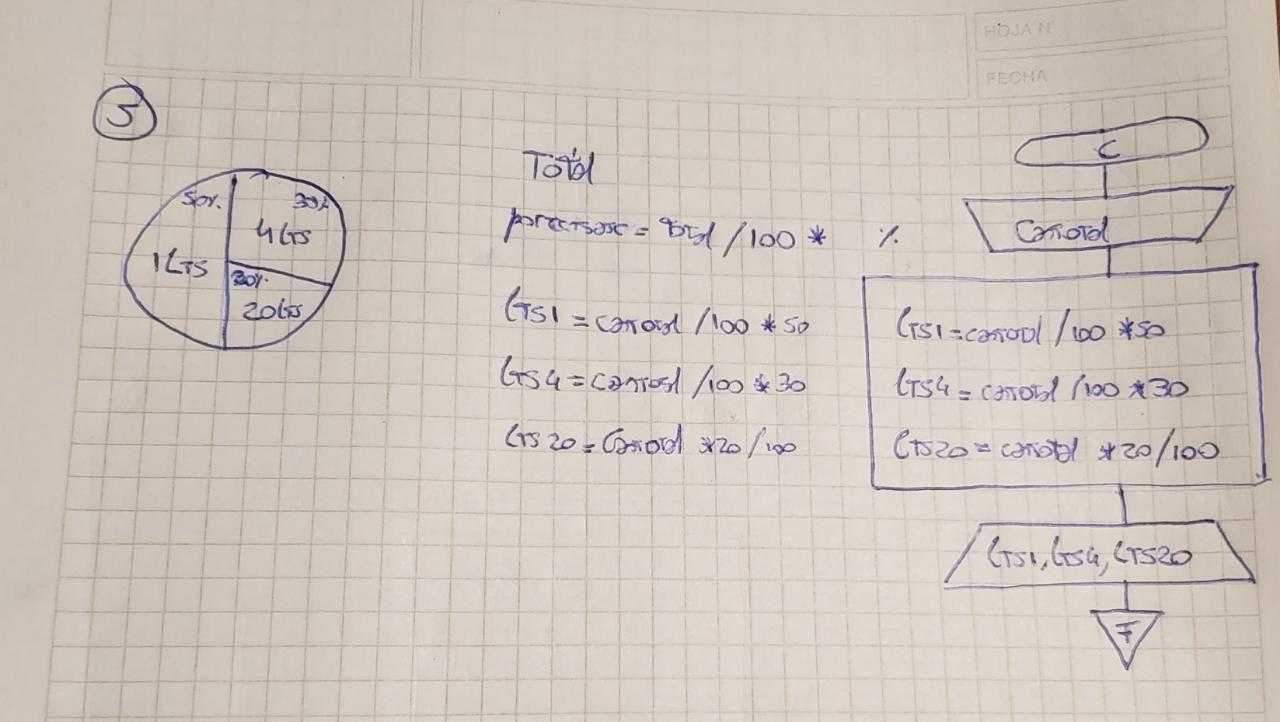 HOJA N°
FECHA
5
C
Total
50%. 30%
4Lts
1Lts
20Lts
= Total /100 * %
canTotal
Lts1 = canTotal /100 * 50
Lts4 = canTotal /100 * 30
Lts20 = canTotal * 20/100
Lts1 = canTotal /100 * 50
Lts4 = canTotal /100 * 30
Lts20 = canTotal * 20/100
Lts1, Lts4, Lts20
F